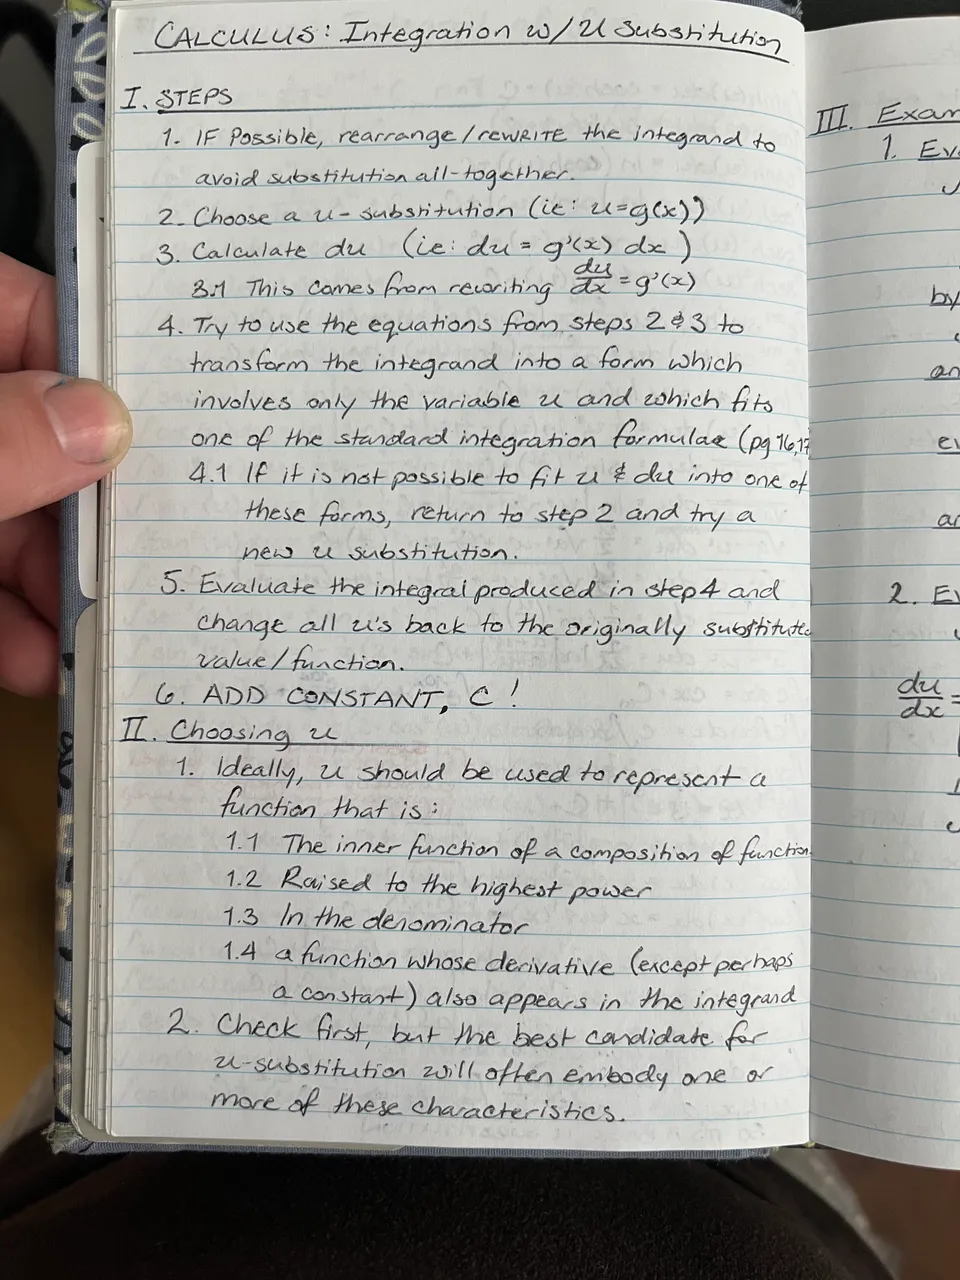 CALCULUS: Integration w/ U Substitution
I. STEPS
1. IF Possible, rearrange/rewRITE the integrand to
avoid substitution all-together.
2. Choose a u-substitution (ie: u=g(x))
3. Calculate du (ie: du = g'(x) dx)
3.1 This comes from rewriting du/dx = g'(x)
4. Try to use the equations from steps 2 & 3 to
transform the integrand into a form which
involves only the variable u and which fits
one of the standard integration formulae (pg 16,17
4.1 If it is not possible to fit u & du into one of
these forms, return to step 2 and try a
new u substitution.
5. Evaluate the integral produced in step 4 and
change all u's back to the originally substituted
value/function.
6. ADD CONSTANT, C!
II. Choosing u
1. Ideally, u should be used to represent a
function that is:
1.1 The inner function of a composition of function
1.2 Raised to the highest power
1.3 In the denominator
1.4 a function whose derivative (except perhaps
a constant) also appears in the integrand
2. Check first, but the best candidate for
u-substitution will often embody one or
more of these characteristics.
III. Exam
1. Eva
by
an
ev
an
2. Ev
du/dx =